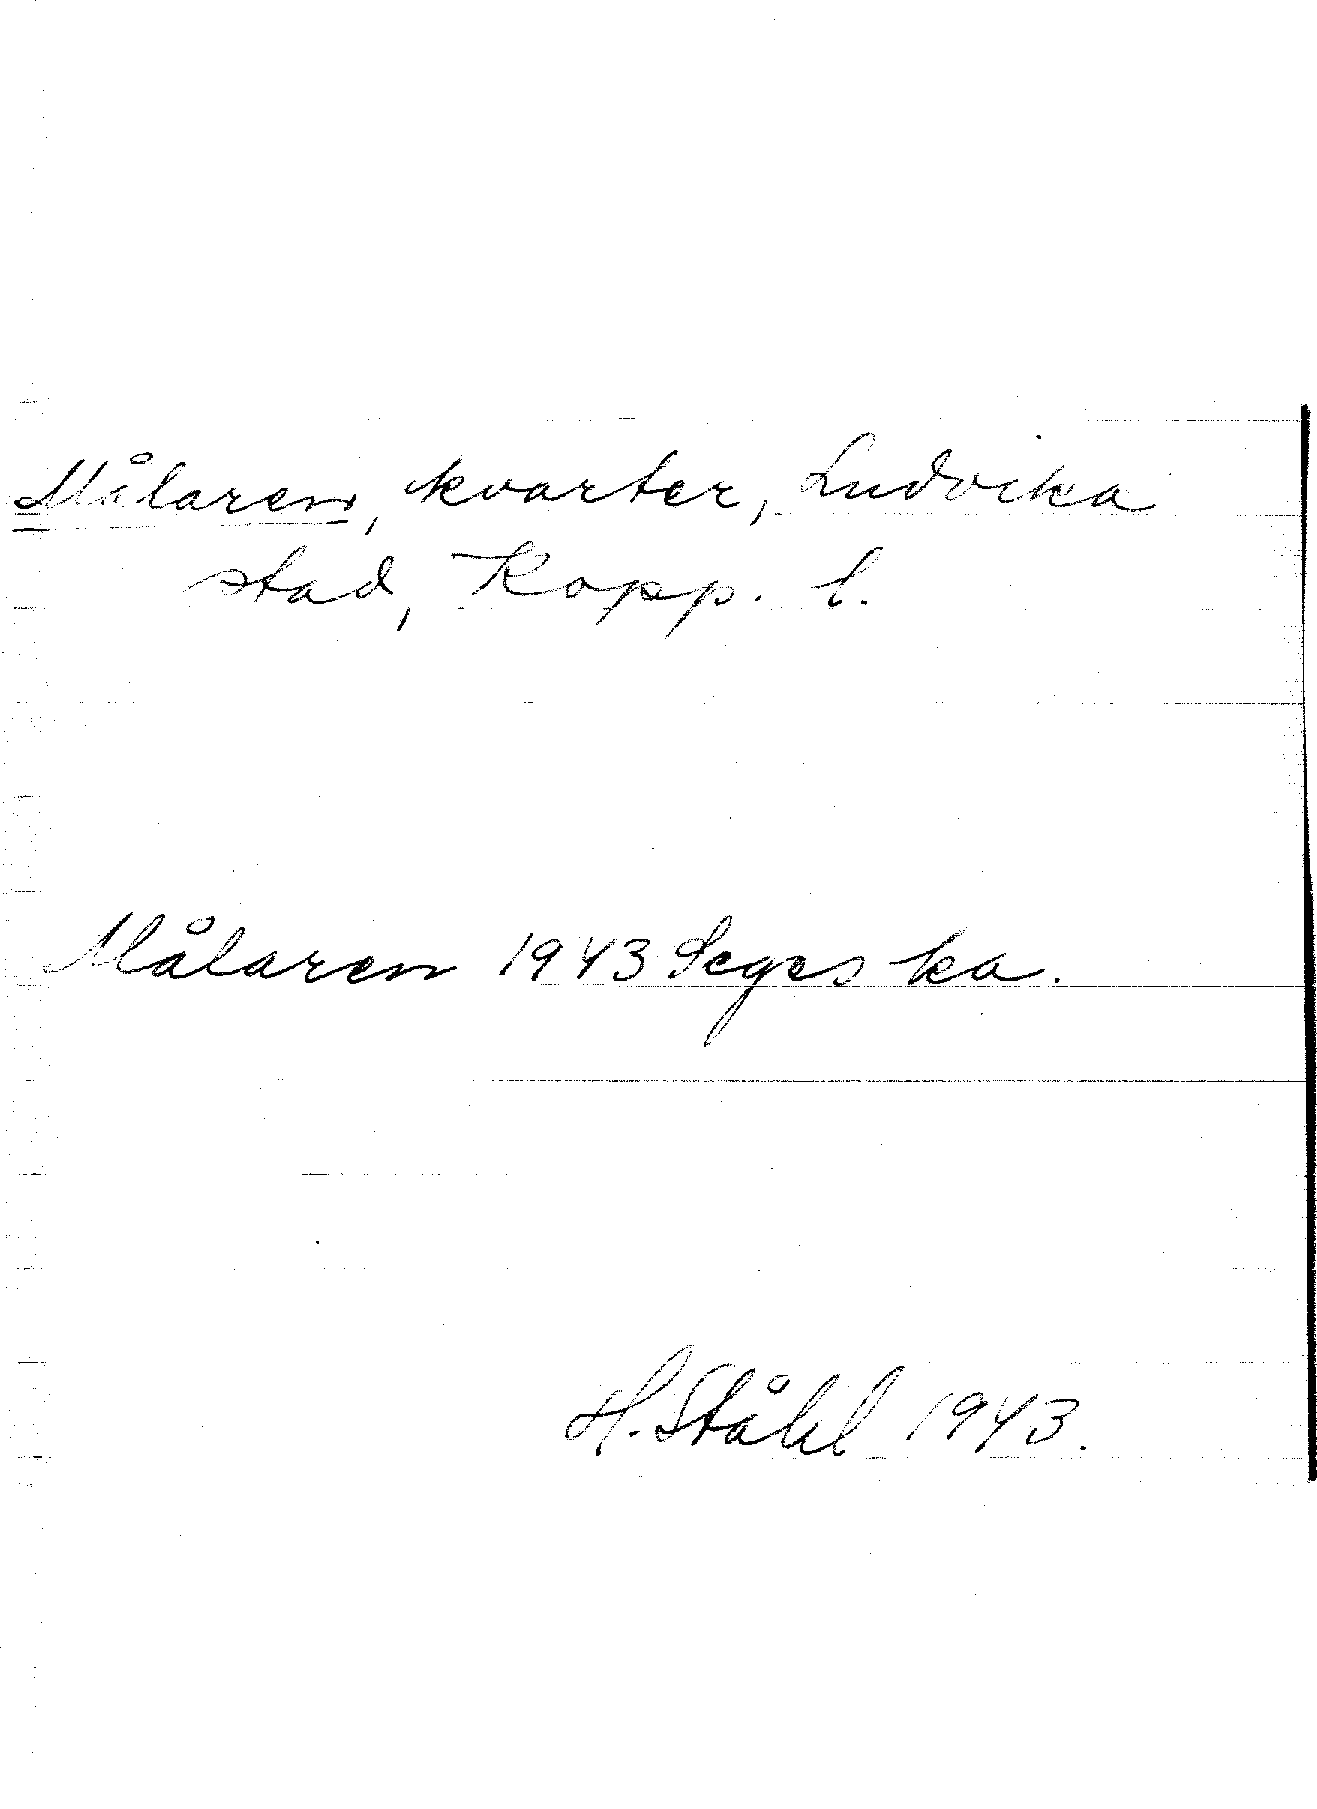 Målaren, kvarter, Ludvika
stad, Kopp. l.
Målaren 1943 Seges ka.
H. Ståhl 1943.